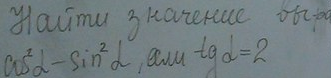 Найти значение выра
cos²α - sin²α, если tgα = 2